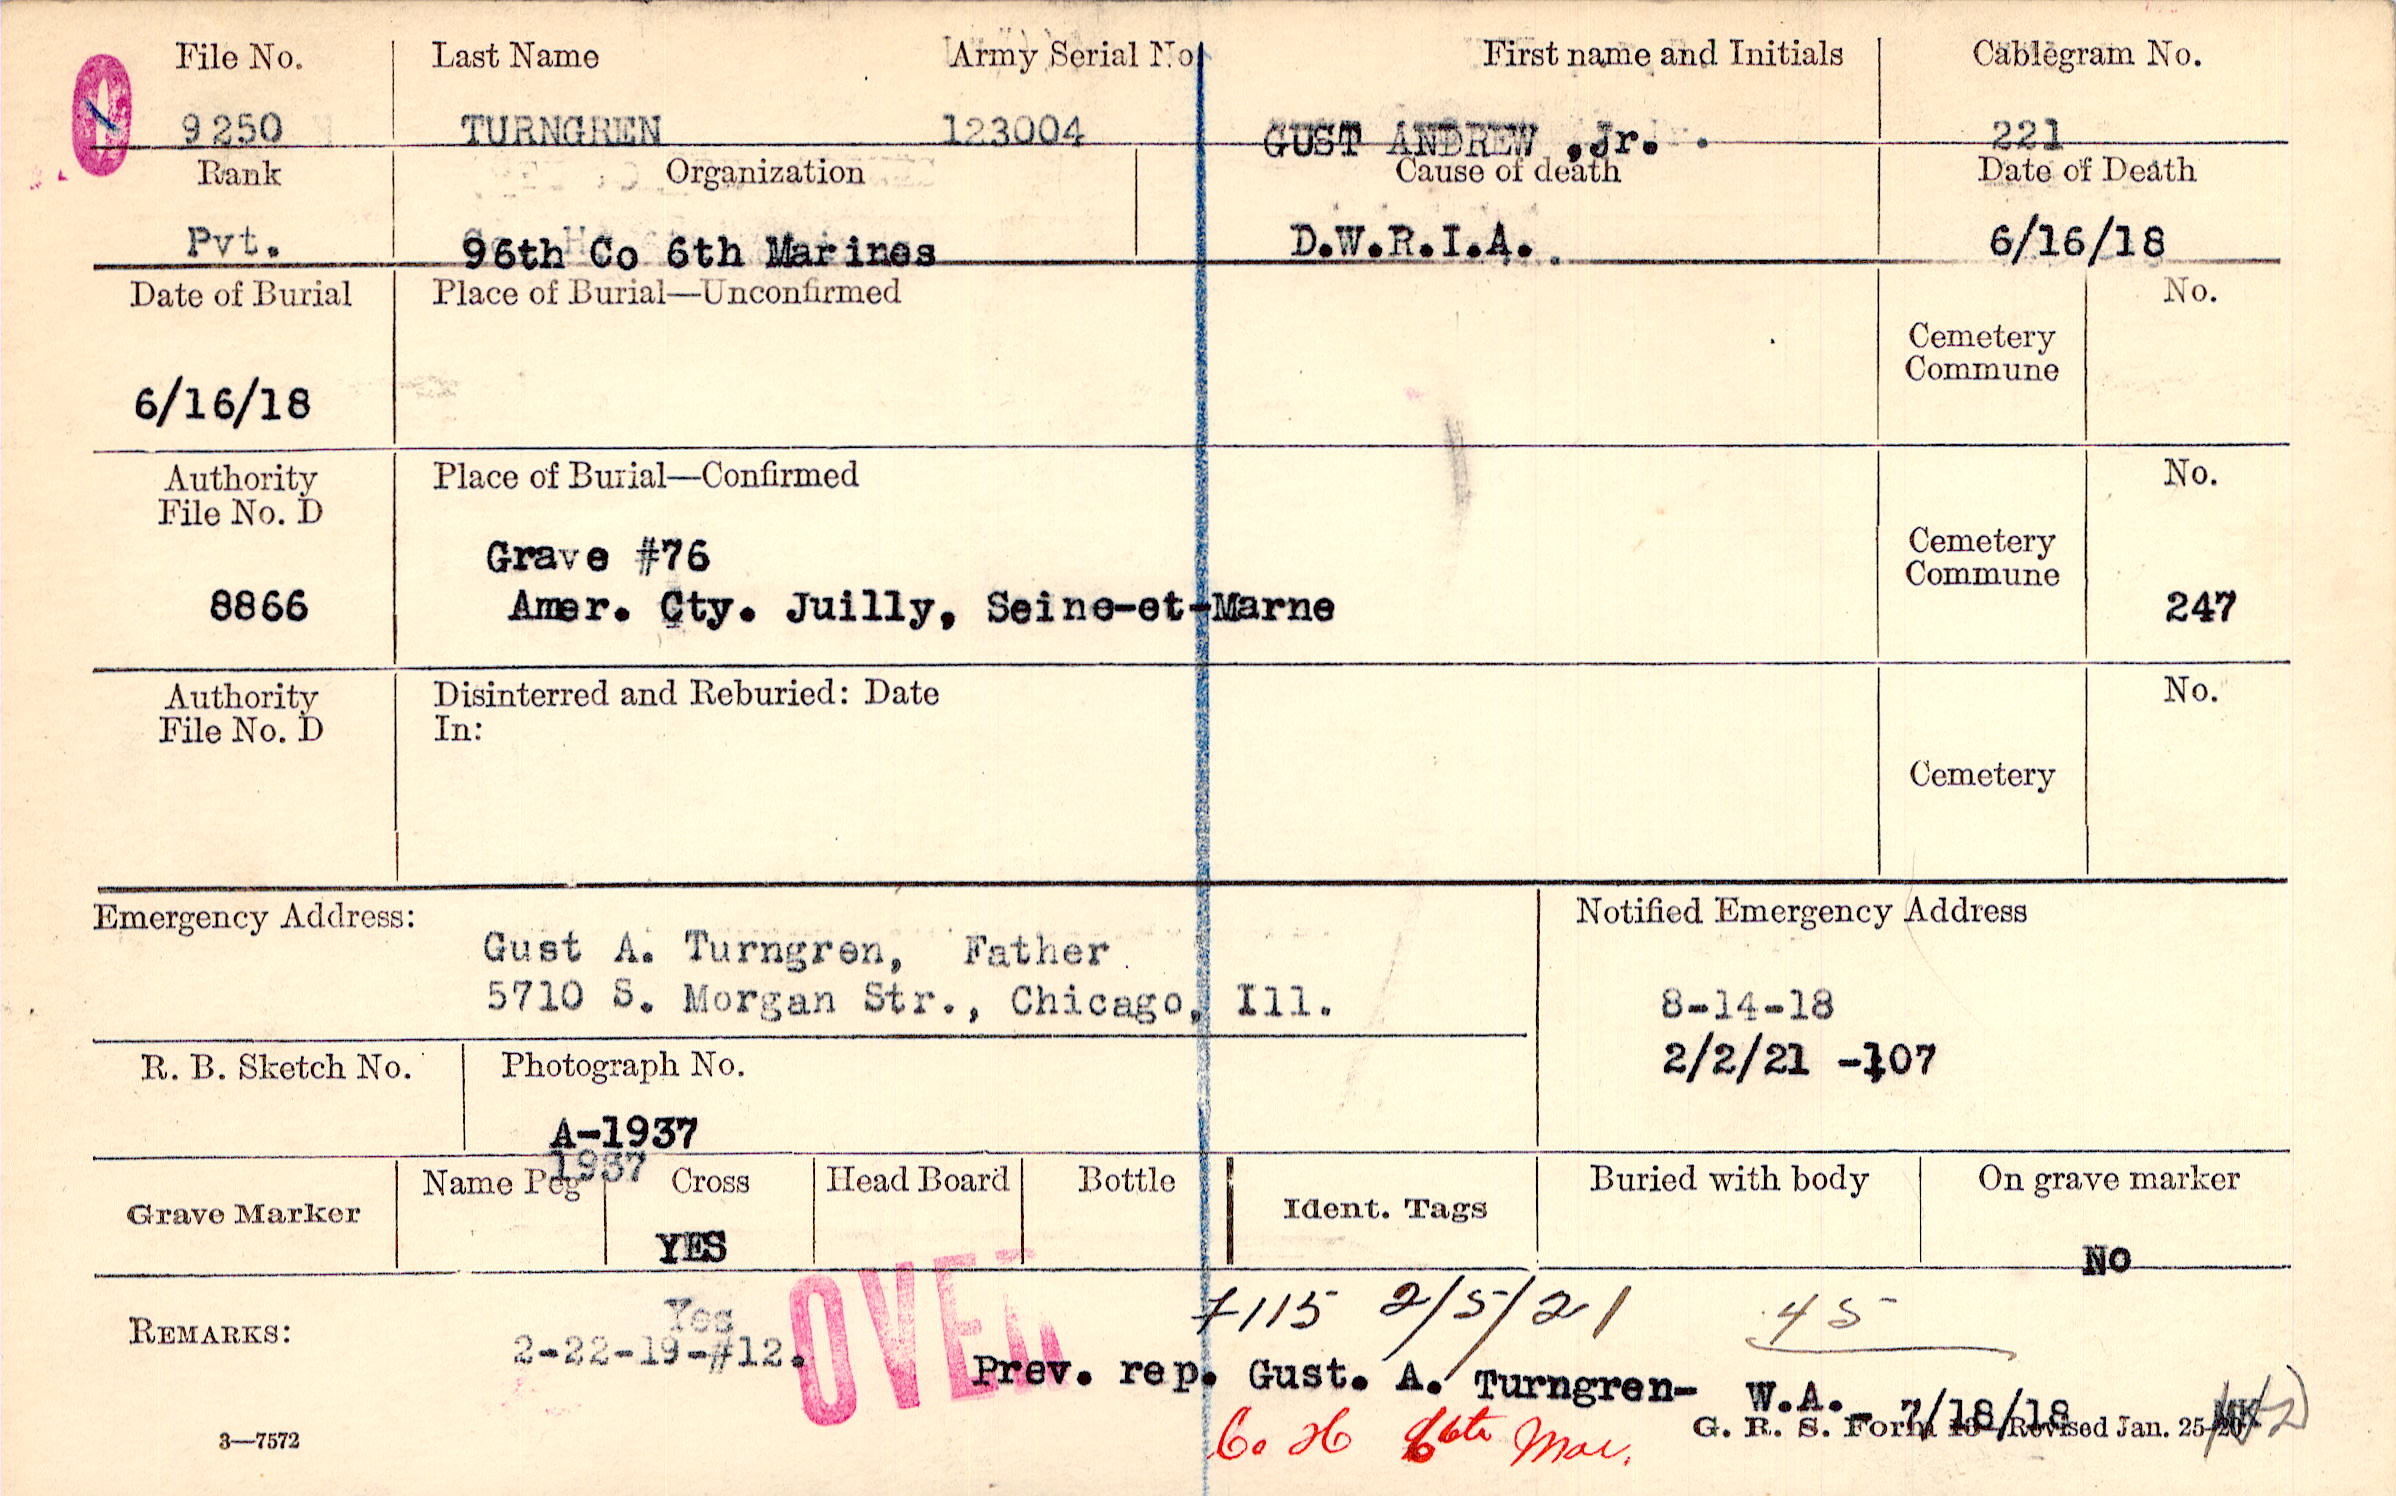 File No. Last Name Army Serial No. First name and Initials Cablegram No.
9250 TURNGREN 123004 GUST ANDREW ,Jr. 221
Rank Organization Cause of death Date of Death
Pvt. 96th Co 6th Marines D.W.R.I.A. 6/16/18
Date of Burial Place of Burial—Unconfirmed No.
Cemetery
Commune
6/16/18
Authority Place of Burial—Confirmed No.
File No. D
Grave #76 Cemetery
Commune
8866 Amer. Cty. Juilly, Seine-et-Marne 247
Authority Disinterred and Reburied: Date No.
File No. D In:
Cemetery
Emergency Address: Notified Emergency Address
Gust A. Turngren, Father
5710 S. Morgan Str., Chicago, Ill. 8-14-18
R. B. Sketch No. Photograph No. 2/2/21 -107
A-1937
1937
Grave Marker Name Peg Cross Head Board Bottle Ident. Tags Buried with body On grave marker
YES NO
Yes OVER 7115 2/5/21 45
REMARKS: 2-22-19-#12.
Prev. rep. Gust. A. Turngren- W.A. - 7/18/18 MK
Co H 6th Mar.
3—7572 G. R. S. Form 13—Revised Jan. 25-20